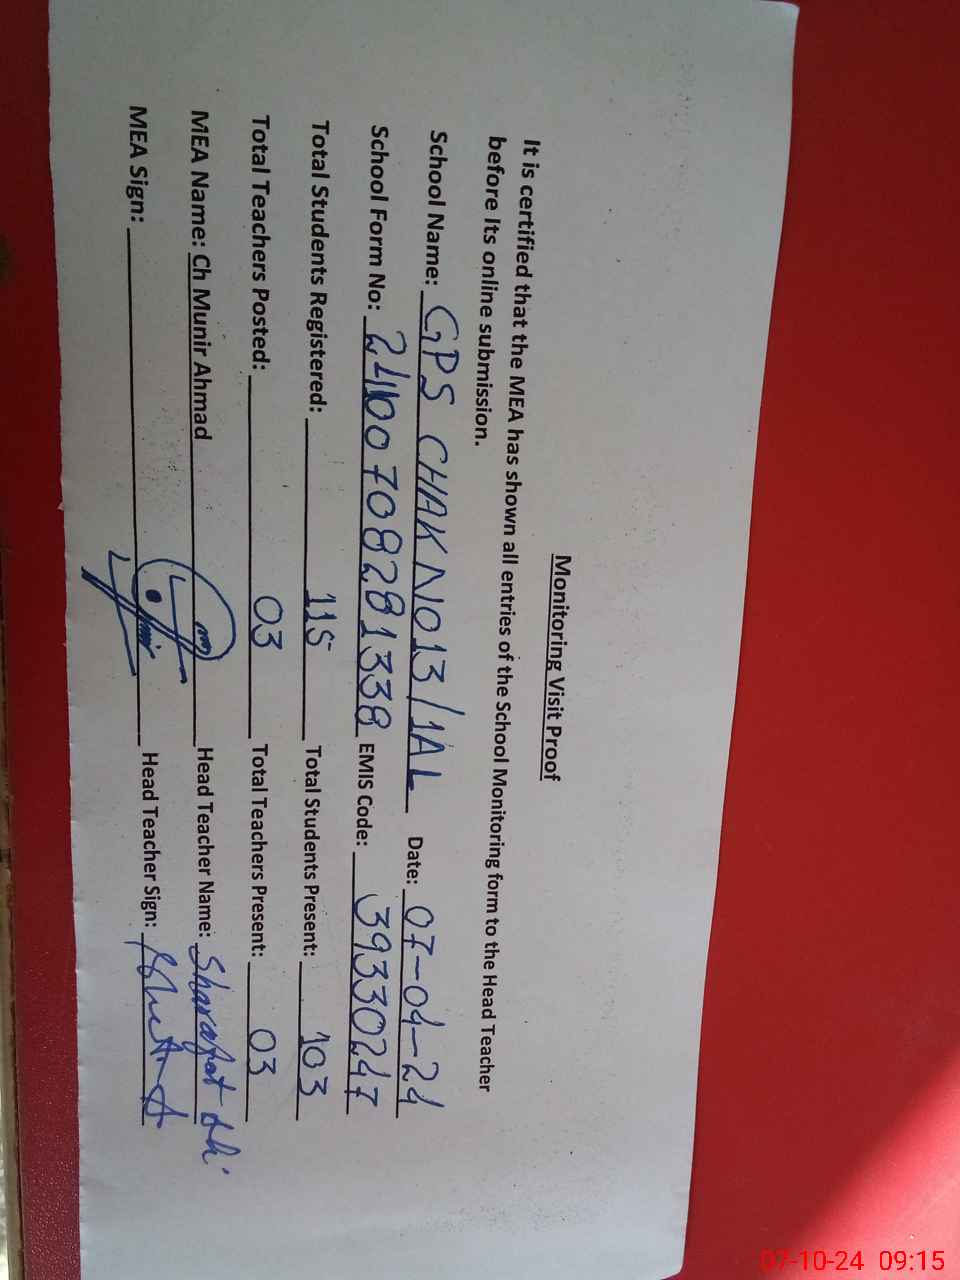 Monitoring Visit Proof
It is certified that the MEA has shown all entries of the School Monitoring form to the Head Teacher
before Its online submission.
School Name: GPS CHAK NO 13/1AL Date: 07-04-24
School Form No: 2410070828 1338 EMIS Code: 39330247
Total Students Registered: 115 Total Students Present: 103
Total Teachers Posted: 03 Total Teachers Present: 03
MEA Name: Ch Munir Ahmad Head Teacher Name: Sharafat Ali
MEA Sign: Head Teacher Sign:
07-10-24 09:15